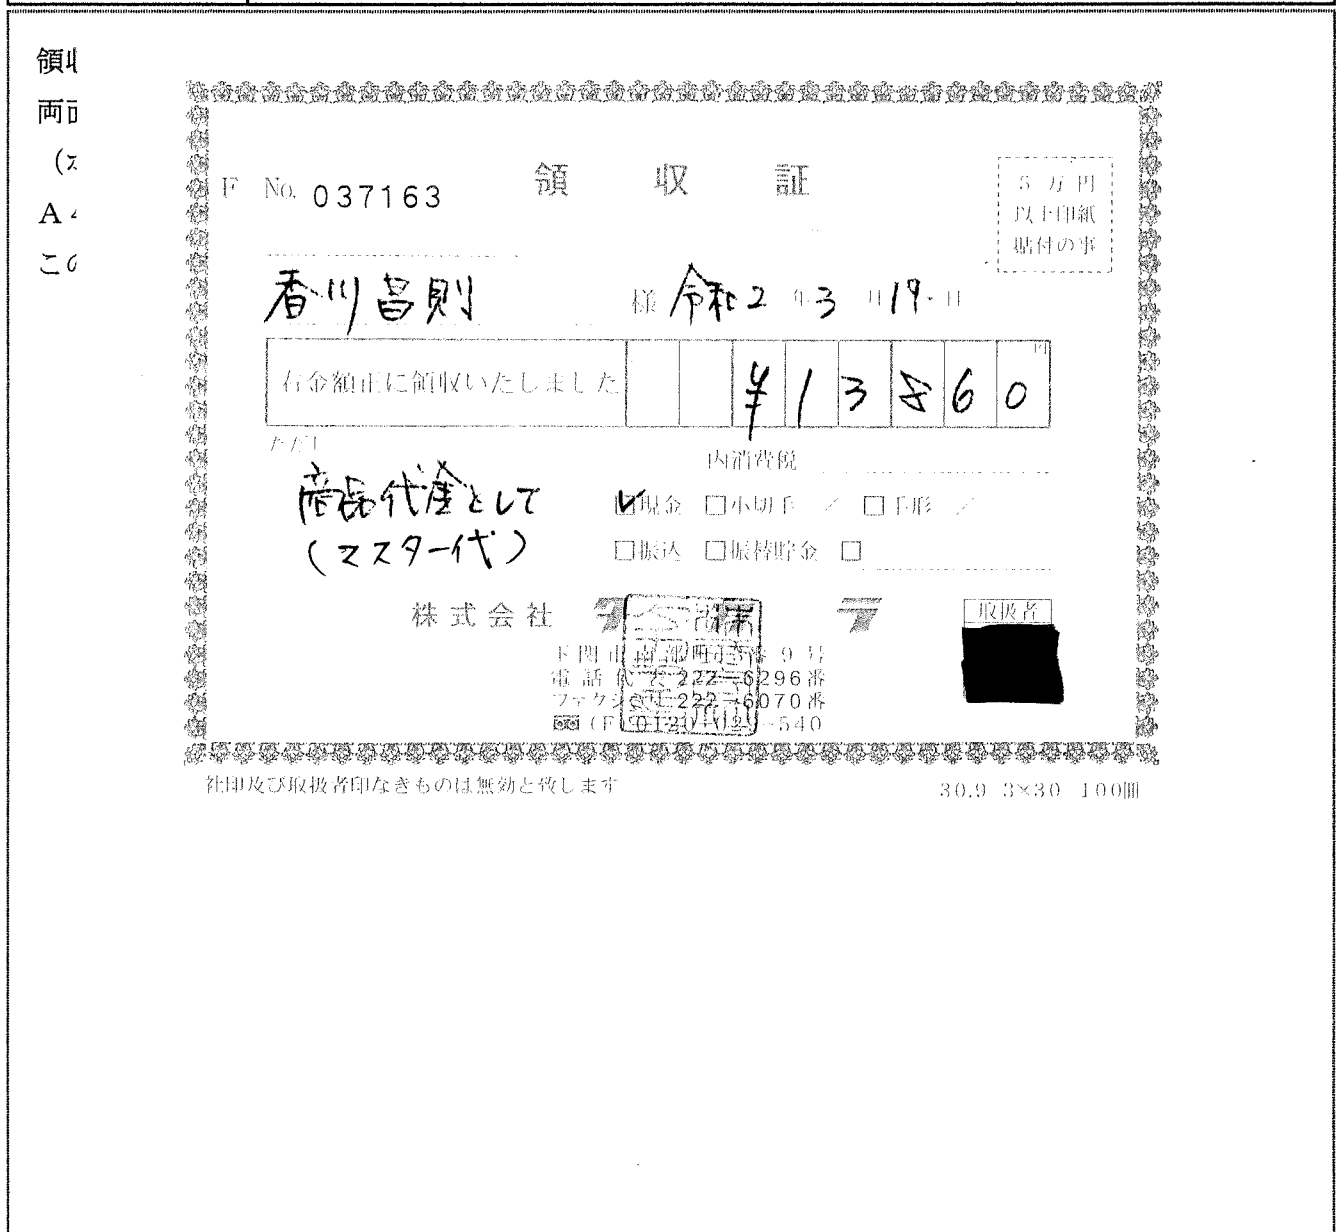 領収
両面
(ス
A4
この
F No. 037163 領収証
5万円
以上印紙
貼付の事
香川昌則 様 令和2年3月19日
右金額正に領収いたしました ¥13860 円
ただし
内消費税
商品代金として
(マスター代)
☑現金 □小切手 / □手形 /
□振込 □振替貯金 □
株式会社
取扱者
下関市南部町 番9号
電話代表222-6296番
ファクシミリ222-6070番
社印及び取扱者印なきものは無効と致します
30.9 3×30 100冊